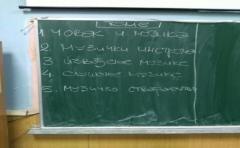 ТЕМЕ
1. ЧОВЕК И МУЗИКА
2. МУЗИЧКИ ИНСТРУМЕ
3. ИЗВОЂЕЊЕ МУЗИКЕ
4. СЛУШАЊЕ МУЗИКЕ
5. МУЗИЧКО СТВАРАЛАШТВО